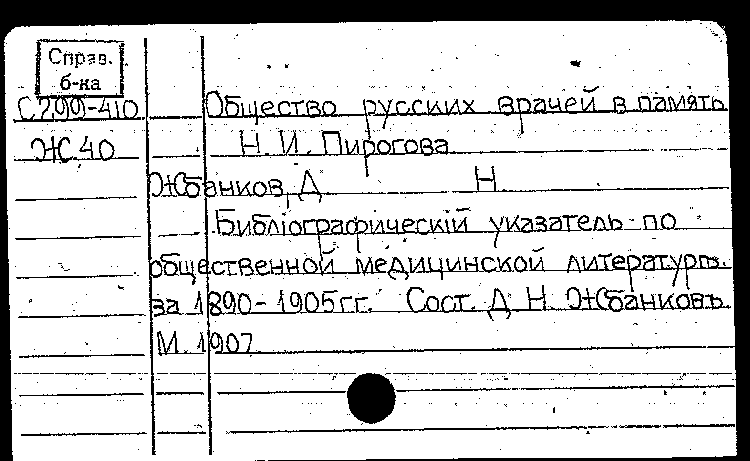 Справ.
б-ка
С799-410 Общество русских врачей в память
Ж.40 Н. И. Пирогова
Жбанков, Д Н
Библіографическій указатель по
общественной медицинской литературѣ
за 1890-1905 гг. Сост. Д. Н. Жбанковъ
М. 1907